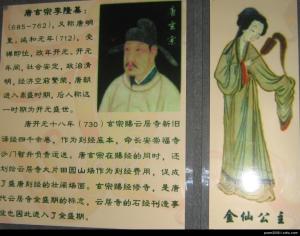 唐玄宗李隆基:
(685-762),又称唐明
皇。延和元年(712),受
禅即位,改年开元。开元
年间,社会安定,政治清
明,经济空前繁荣,唐朝
进入鼎盛时期,后人称这
一时期为开元盛世。
唐玄宗
唐开元十八年(730)玄宗赐云居寺新旧
译经四千余卷,作为刻经底本。命长安崇福寺
沙门智升负责运送。唐玄宗在赐经的同时,还
划归云居寺大片田园山场作为刻经费用,促成
了盛唐刻经的壮阔场面。玄宗赐经修寺,是唐
代云居寺全盛期的标志。云居寺的石经刊造事
业也因此进入了全盛期。
金仙公主